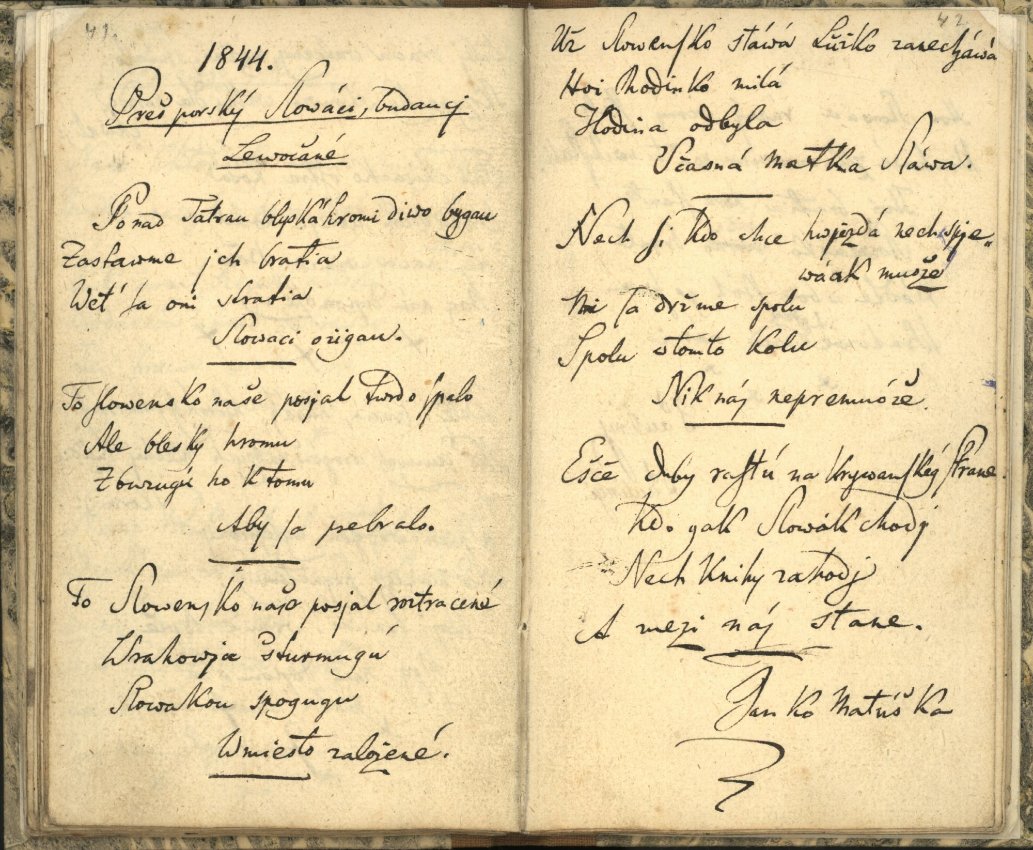 41.
1844.
Prešporský Slowáci, budaucj
Lewočané
Ponad Tatrau blyská hromi diwo bygau
Zastawme jch bratia
Wěť sa oni stratia
Slowaci ožigau.
To slowensko naše posjal twrdo spalo
Ale blesky hromu
Zbuzugú ho k tomu
Aby sa prebralo.
To Slowensko naše posjal roztracené
Wrahowja šturmugú
Slowakou spogugu
W miesto založené.
42
Už Slowensko stáwá Lúžko zanecháwá
Hoi Rodinko milá
Hodina odbyla
Včasná matka Sláwa.
Nech si kdo chce hwjezdá nech spje„
wáak muože
Mi sa držme spolu
Spolu w tomto kolu
Nik náj nepremuóže.
Ešče duby rastú na krywanskég strane
Kdo gak Slowák chodj
Nech knihy zahodj
A mezi náj stane.
Janko Matúška